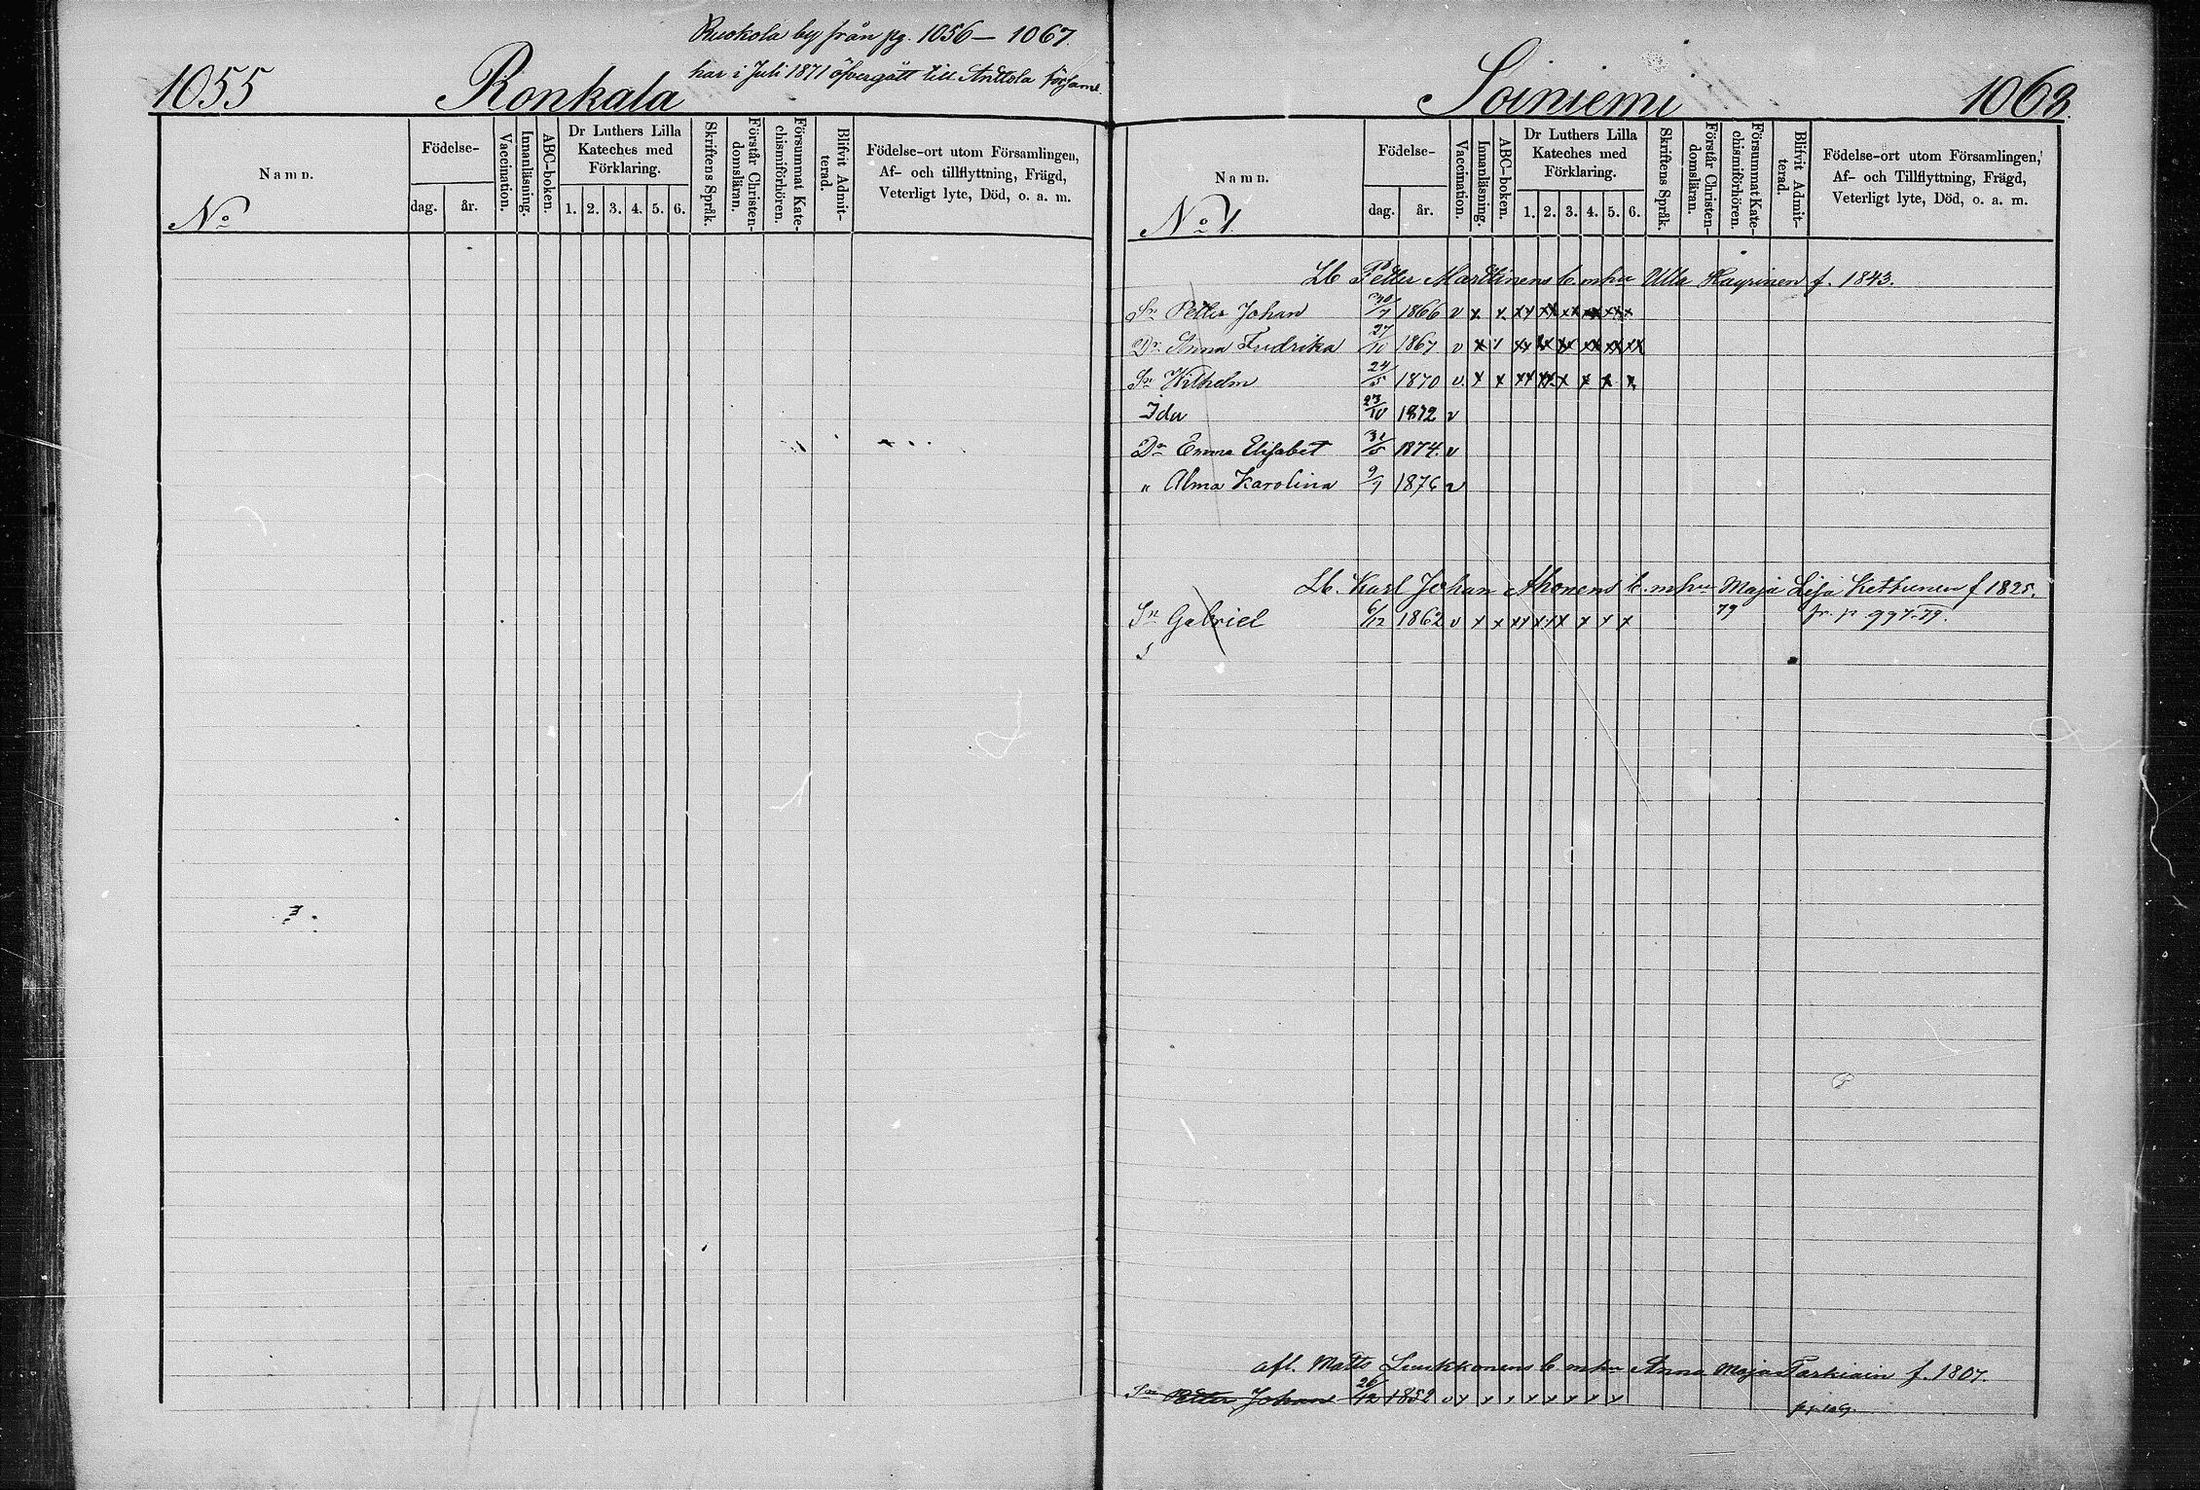 Ruokola by från pg. 1056 — 1067.
har i Juli 1871 öfvergått till Anttola förs
1055 Ronkala
Namn.
No
Födelse-
dag. år.
Vaccination.
Innanläsning.
ABC-boken.
Dr Luthers Lilla
Kateches med
Förklaring.
1. 2. 3. 4. 5. 6.
Skriftens Språk.
Förstår Christen-
domsläran.
Försummat Kate-
chismiförhören.
Blifvit Admit-
terad.
Födelse-ort utom Församlingen,
Af- och tillflyttning, Frägd,
Veterligt lyte, Död, o. a. m.
Soiniemi 1063.
Namn.
No 1.
Födelse-
dag. år.
Vaccination.
Innanläsning.
ABC-boken.
Dr Luthers Lilla
Kateches med
Förklaring.
1. 2. 3. 4. 5. 6.
Skriftens Språk.
Förstår Christen-
domsläran.
Försummat Kate-
chismiförhören.
Blifvit Admit-
terad.
Födelse-ort utom Församlingen,
Af- och Tillflyttning, Frägd,
Veterligt lyte, Död, o. a. m.
Lb Petter Marttinens b. mhu Ulla Häyrinen f. 1843.
Sn Petter Johan 30/7 1866 v x x xx xx xx xx xx x
Dr Anna Fredrika 27/10 1867 v x x xx xx xx xx xx xx
Sn Wilhelm 24/5 1870 v. x x xx xx x x x x
Ida 23/10 1872 v
Dr Emma Elisabet 31/5 1874. v
" Alma Karolina 9/9 1876 v
Lb. Karl Johan Ahonens b. mhu Maja Lisa Kettunen f 1825.
Sn Gabriel 6/12 1862 v x x xx xx x x x 79 fr. p 997. 79.
afl. Matts Luukkonens b. mhu Anna Maja Tarkiain f. 1807.
Sn Petter Johan 26/12 1852 v x x x x x x x x